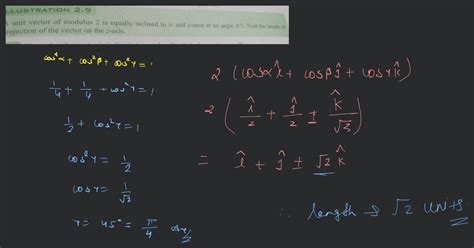 ILLUSTRATION 2.9
A unit vector of modulus 2 is equally inclined to x- and y-axes at an angle π/3. Find the length of
projection of the vector on the z-axis.
cos²α + cos²β + cos²γ = 1
1/4 + 1/4 + cos²γ = 1
1/2 + cos²γ = 1
cos²γ = 1/2
cosγ = 1/√2
γ = 45° = π/4
2 (cosα î + cosβ ĵ + cosγ k̂)
2 (î/2 + ĵ/2 ± k̂/√2)
= î + ĵ ± √2 k̂
∴ length → √2 units